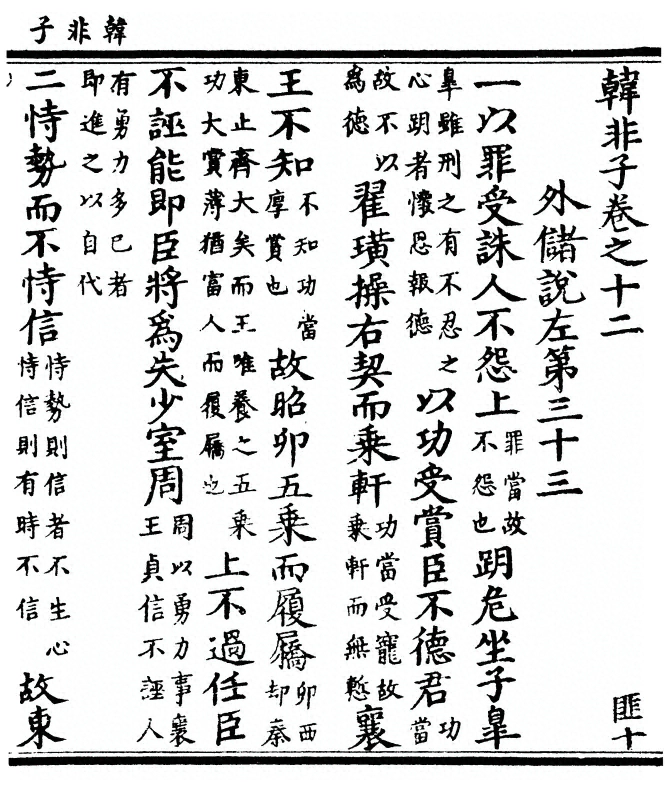 韓非子
韓非子卷之十二 匪十
外儲說左第三十三
一以罪受誅人不怨上罪當故不怨也跀危坐子皐
皐雖刑之有不忍之心跀者懷恩報德以功受賞臣不德君功當
故不以為德翟璜操右契而乘軒功當受寵故乗軒而無慙襄
王不知不知功當厚賞也故昭卯五乘而履屩卯西却秦
東止齊大矣而王唯養之五乘功大賞薄猶富人而履屩也上不過任臣
不誣能即臣將爲失少室周周以勇力事襄王貞信不誣人
有勇力多已者即進之以自代
二恃勢而不恃信恃勢則信者不生心恃信則有時不信故東